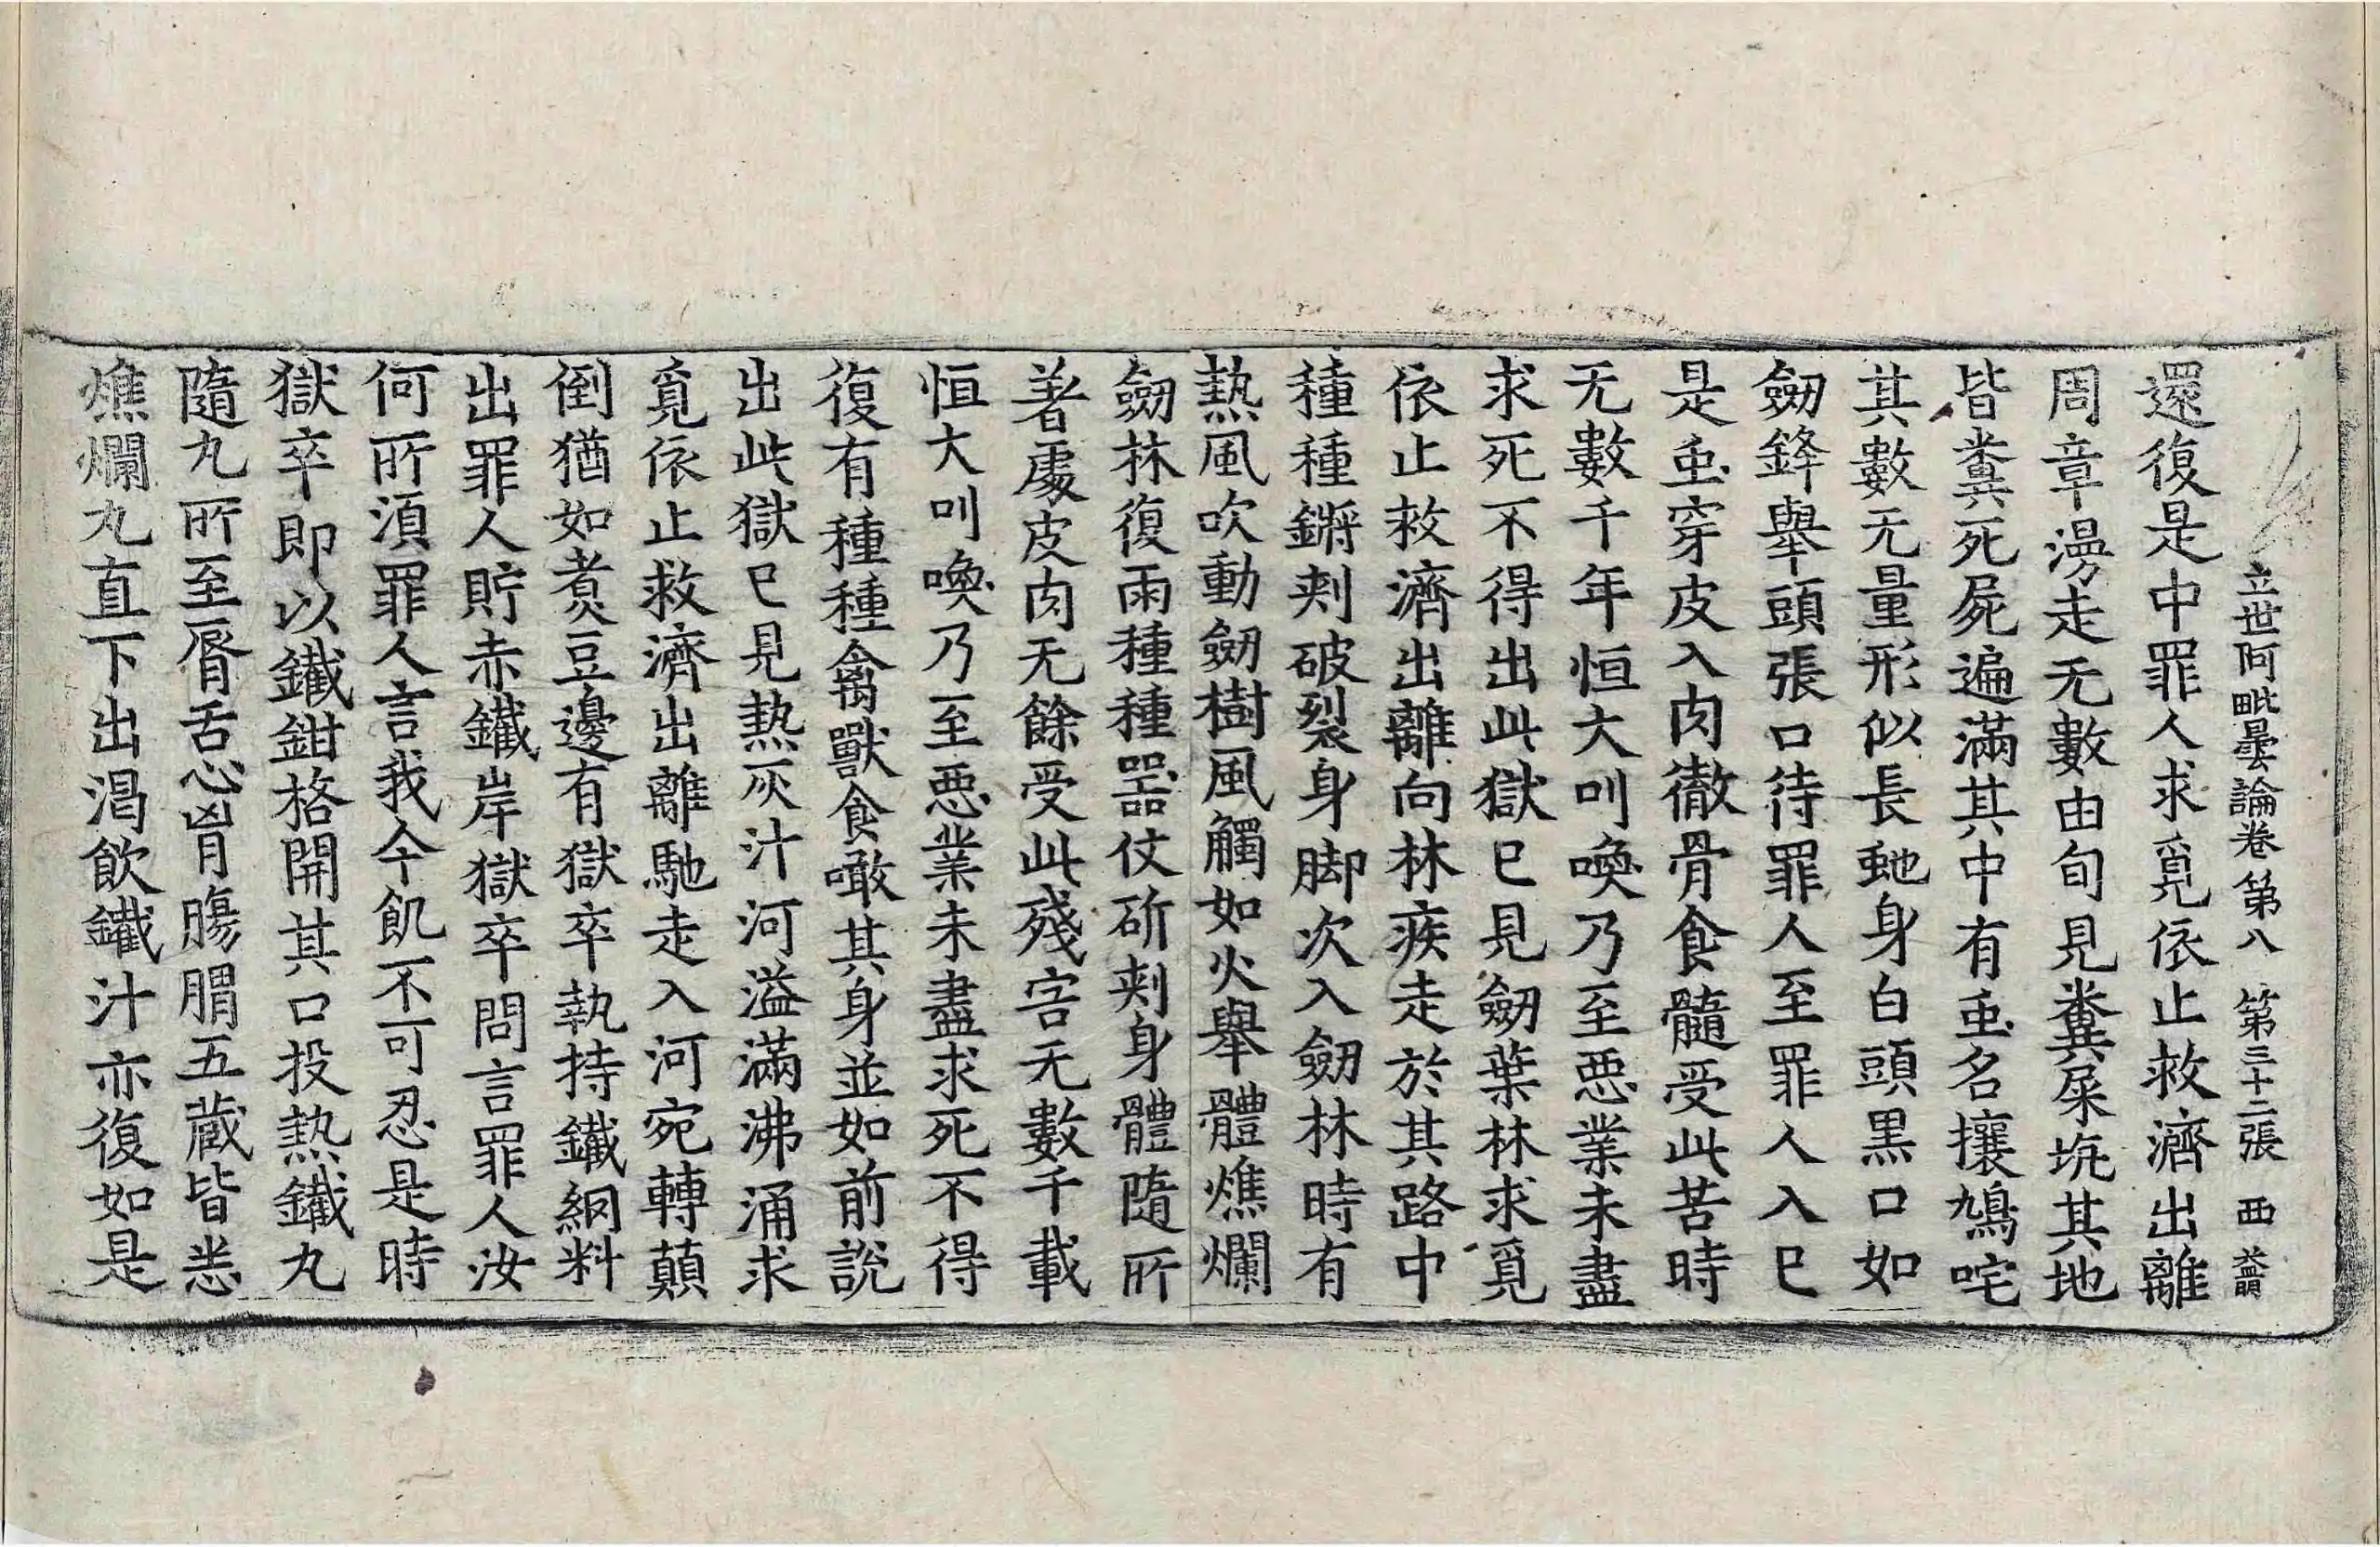 立世阿毗曇論卷第八 第三十二張 西
還復是中罪人求覓依止救濟出離
周章漫走无數由旬見糞屎坑其地
皆糞死屍遍滿其中有䖝名攘鳩咤
其數无量形似長虵身白頭黒口如
劒鋒舉頭張口待罪人至罪人入已
是䖝穿皮入肉徹骨食髓受此苦時
无數千年恒大叫喚乃至惡業未盡
求死不得出此獄已見劒葉林求覓
依止救濟出離向林疾走於其路中
種種鏘刾破裂身脚次入劒林時有
熱風吹動劒樹風觸如火舉體燋爛
劒林復雨種種器仗斫刾身體隨所
著處皮肉无餘受此殘害无數千載
恒大叫喚乃至惡業未盡求死不得
復有種種禽獸食噉其身並如前說
出此獄已見熱灰汁河溢滿沸涌求
覓依止救濟出離馳走入河宛轉顛
倒猶如煮豆邊有獄卒執持鐵網料
出罪人貯赤鐵岸獄卒問言罪人汝
何所須罪人言我今飢不可忍是時
獄卒即以鐵鉗格開其口投熱鐵丸
隨丸所至脣舌心胷膓膶五藏皆悉
燋爛丸直下出渴飲鐵汁亦復如是